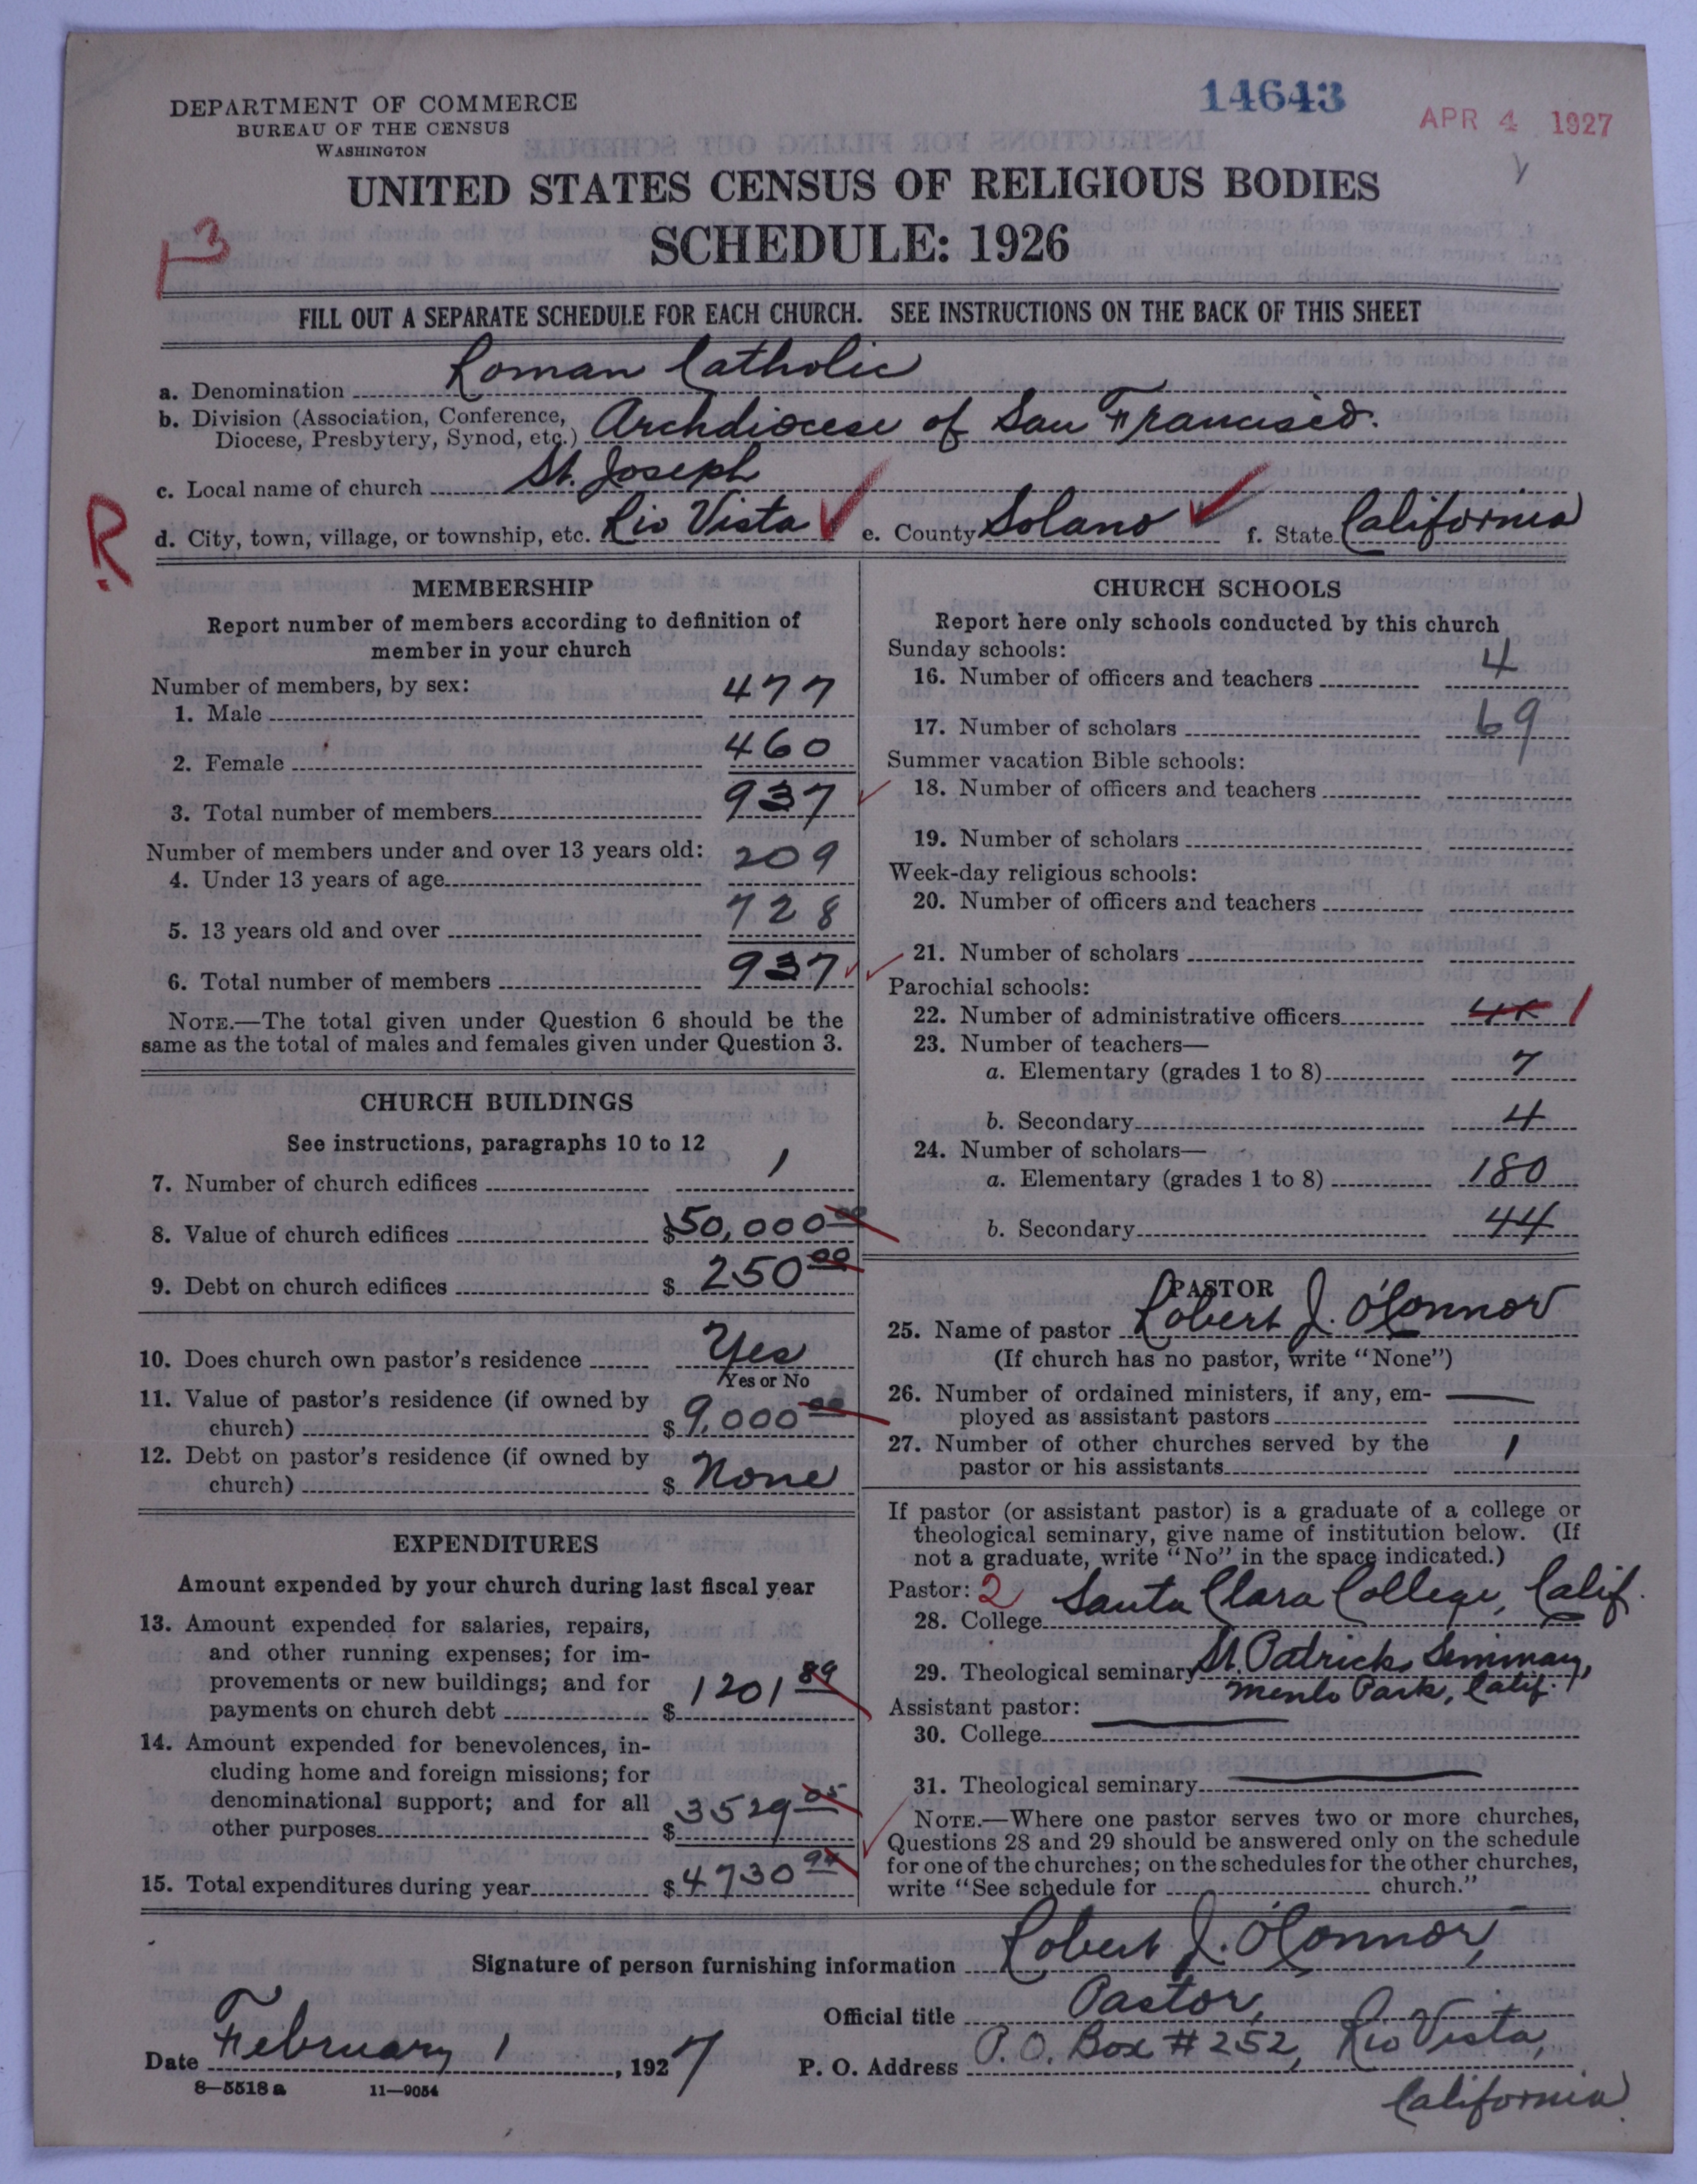 DEPARTMENT OF COMMERCE
BUREAU OF THE CENSUS
WASHINGTON
14643
APR 4 1927
UNITED STATES CENSUS OF RELIGIOUS BODIES
SCHEDULE: 1926
13
FILL OUT A SEPARATE SCHEDULE FOR EACH CHURCH. SEE INSTRUCTIONS ON THE BACK OF THIS SHEET
a. Denomination Roman Catholic
b. Division (Association, Conference,
Diocese, Presbytery, Synod, etc.) Archdiocese of San Francisco.
c. Local name of church St. Joseph
R
d. City, town, village, or township, etc. Rio Vista e. County Solano f. State California
MEMBERSHIP
Report number of members according to definition of
member in your church
Number of members, by sex:
1. Male 477
2. Female 460
3. Total number of members 937
Number of members under and over 13 years old:
4. Under 13 years of age 209
5. 13 years old and over 728
6. Total number of members 937
NOTE.—The total given under Question 6 should be the
same as the total of males and females given under Question 3.
CHURCH BUILDINGS
See instructions, paragraphs 10 to 12
7. Number of church edifices 1
8. Value of church edifices $50,000 00
9. Debt on church edifices $ 250 00
10. Does church own pastor's residence Yes
Yes or No
11. Value of pastor's residence (if owned by
church) $ 9,000 00
12. Debt on pastor's residence (if owned by
church) $ None
EXPENDITURES
Amount expended by your church during last fiscal year
13. Amount expended for salaries, repairs,
and other running expenses; for im-
provements or new buildings; and for
payments on church debt $ 1201 89
14. Amount expended for benevolences, in-
cluding home and foreign missions; for
denominational support; and for all
other purposes $ 3529 05
15. Total expenditures during year $ 4730 94
CHURCH SCHOOLS
Report here only schools conducted by this church
Sunday schools:
16. Number of officers and teachers 4
17. Number of scholars 69
Summer vacation Bible schools:
18. Number of officers and teachers
19. Number of scholars
Week-day religious schools:
20. Number of officers and teachers
21. Number of scholars
Parochial schools:
22. Number of administrative officers 1
23. Number of teachers—
a. Elementary (grades 1 to 8) 7
b. Secondary 4
24. Number of scholars—
a. Elementary (grades 1 to 8) 180
b. Secondary 44
PASTOR
25. Name of pastor Robert J. O'Connor
(If church has no pastor, write "None")
26. Number of ordained ministers, if any, em-
ployed as assistant pastors —
27. Number of other churches served by the
pastor or his assistants 1
If pastor (or assistant pastor) is a graduate of a college or
theological seminary, give name of institution below. (If
not a graduate, write "No" in the space indicated.)
Pastor: 2
28. College Santa Clara College, Calif.
29. Theological seminary St. Patricks Seminary,
Menlo Park, Calif.
Assistant pastor:
30. College —
31. Theological seminary —
NOTE.—Where one pastor serves two or more churches,
Questions 28 and 29 should be answered only on the schedule
for one of the churches; on the schedules for the other churches,
write "See schedule for church."
Signature of person furnishing information Robert J. O'Connor,
Official title Pastor,
Date February 1, 1927 P. O. Address P.O. Box #252, Rio Vista,
California
8—5518 a 11—9054